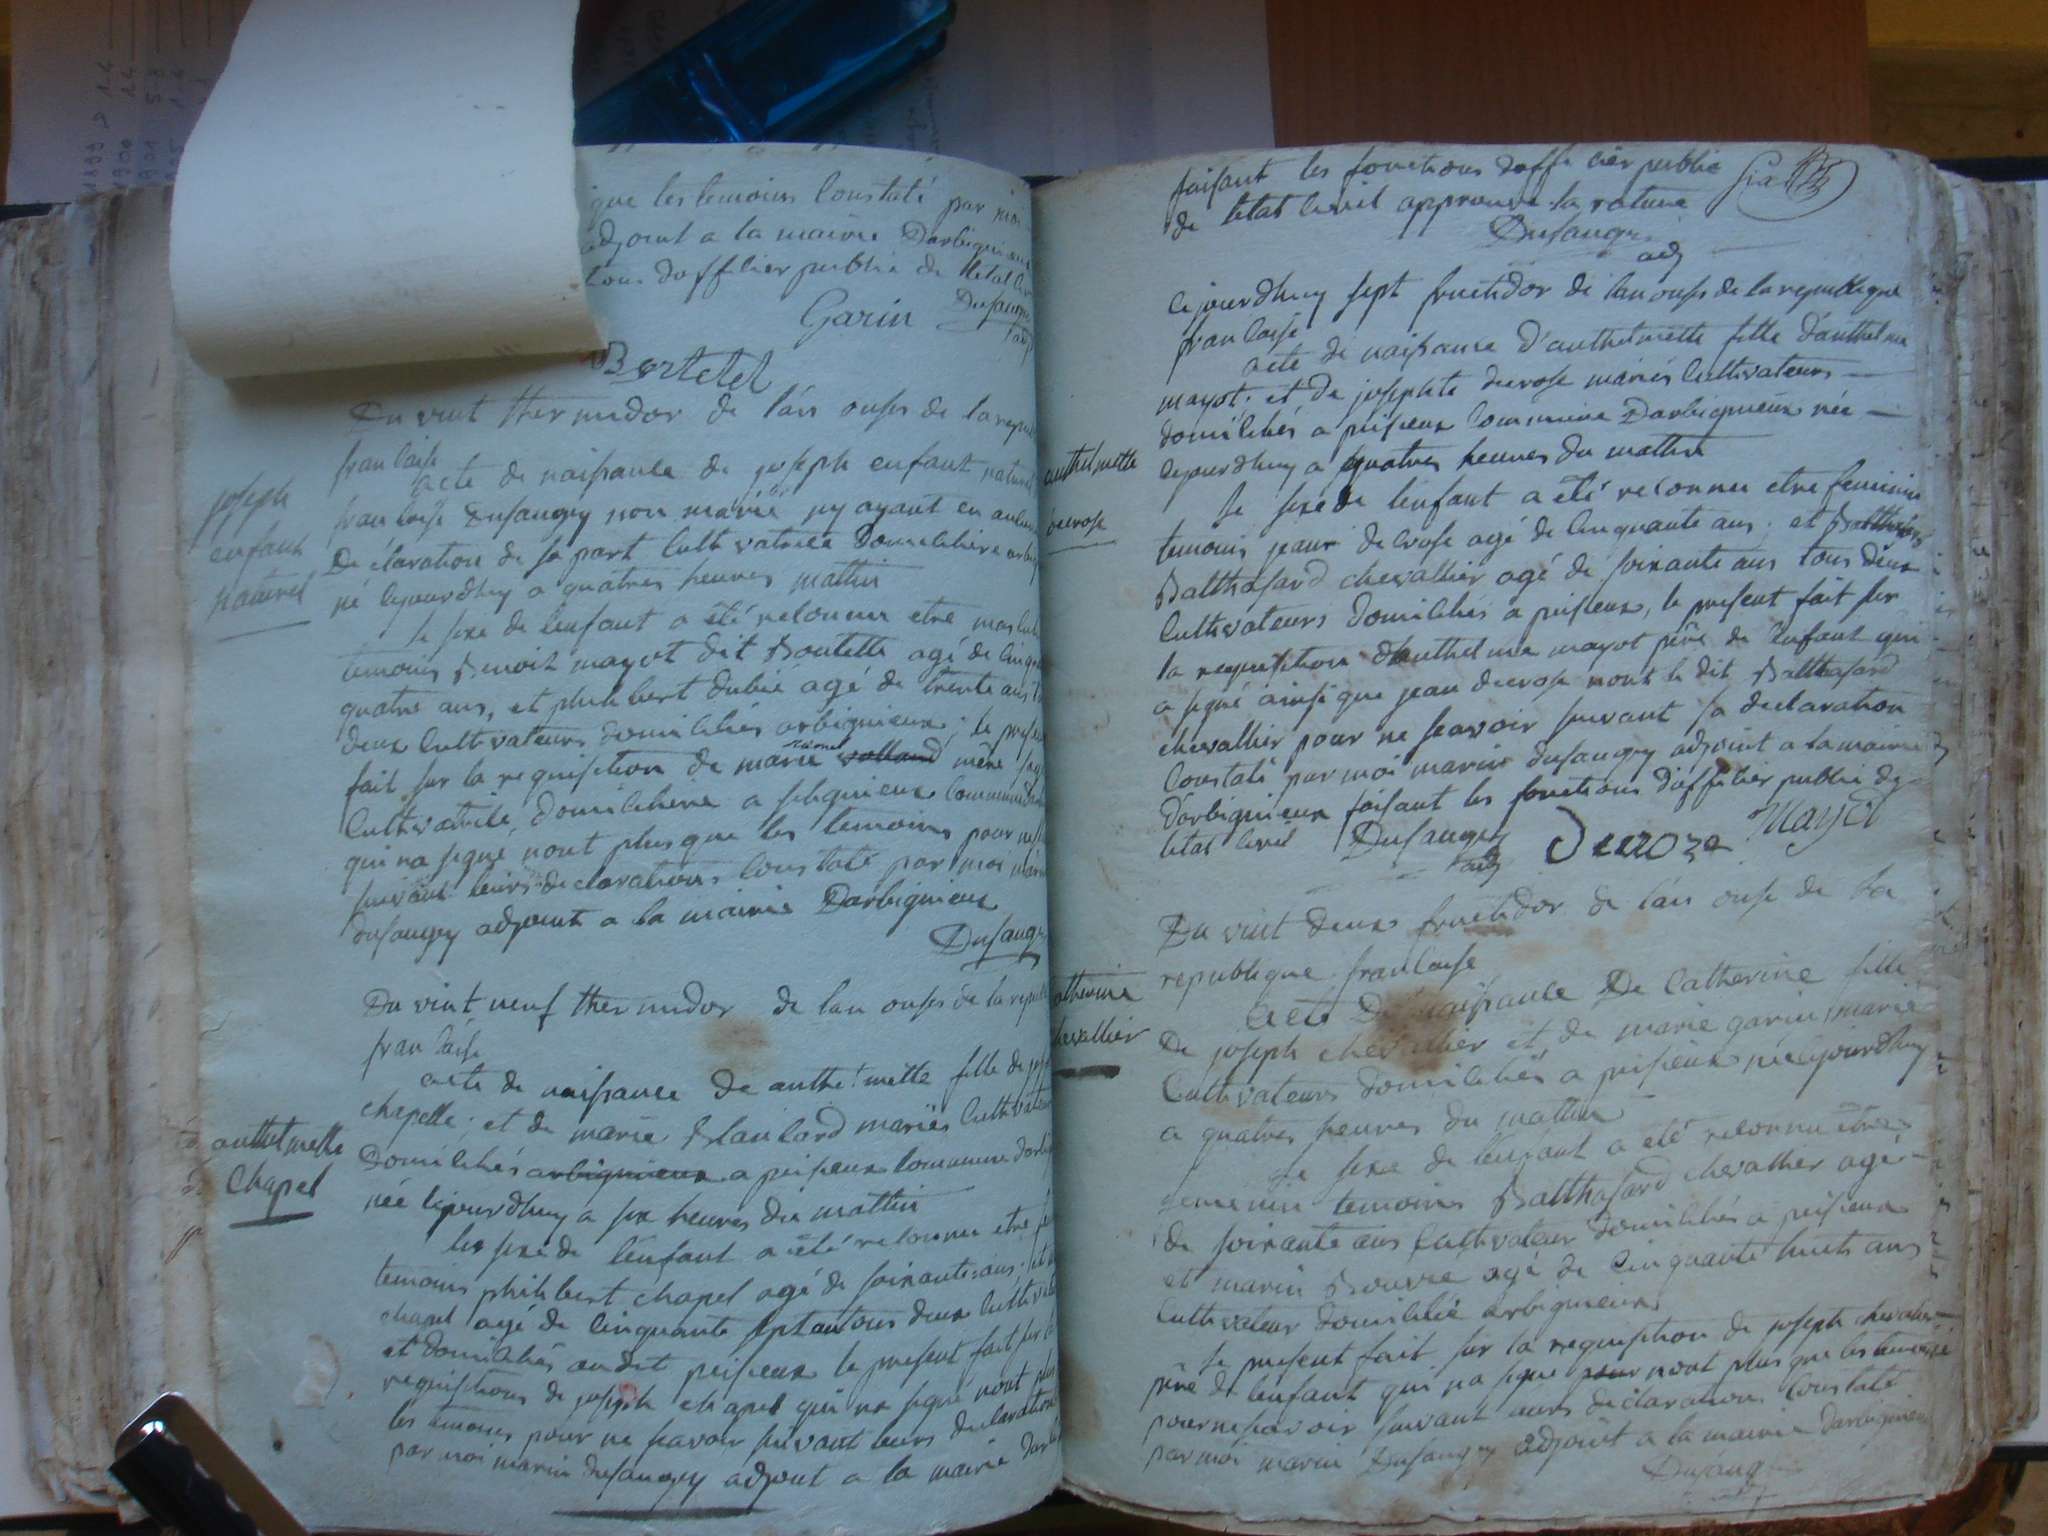 que les temoins Constaté par moi
adjoint a la mairie Darbignieux
tions dofficier public de letat civ
Garin Dufaugey
adj
Bertetet
Du vint thermidor de l'an onse de la repu
francaise
acte de naissance de joseph enfant naturel
francoise Dufaugey non marié ny ayant eu aucune
Déclaration de sa part Cultivatrice Domiciliée arbig
né cejourdhuy a quatres heures mattin
joseph
enfant
naturel
le sexe de lenfant a été reconnu etre masculin
temoins Benoit mayot dit Boutette agé de cinq
quatre ans, et philibert Dubié agé de trente ans t
deux Cultivateurs domiciliés arbignieux; le presen
fait sur la requisition de marie volland mére sag
Cultivatrice, Domiciliere a selignieux Commune
qui na signé nont plus que les temoins pour ne s
suivant leurs declarations Constaté par moi marin
dufaugey adjoint a la mairie Darbignieux
Dufaugey
Du vint neuf thermidor de lan onse de la republi
francaise
acte de naissance de anthelmette fille de jos
chapelle; et de marie Blanlard mariés Cultivateurs
Domiciliés arbignieux a peisieux Commune Darbig
née cejourdhuy a six heures du mattin
anthelmette
Chapel
le sexe de l'enfant a été reconnu etre fe
temoins philibert chapel agé de soixante ans; et
chapel agé de cinquante sept ans tous deux Cultivate
et domiciliés audit peisieux le present fait sur la
requisitions de joseph chapel qui na signé nont plus
les temoins pour ne savoir suivant leurs declarations
par moi marin Dufaugey adjoint a la mairie Darbi
faisant les fonctions dofficier public
de letat civil approuve la rature
Dufaugey
adj
Cejourdhuy sept fructidor de lan onse de la republique
francaise
acte de naissance d'anthelmette fille d'anthelme
mayot; et de josephte decrose mariés Cultivateurs
domiciliés a peisieux Commune Darbignieux née
cejourdhuy a quatres heures du mattin
anthelmette
decrose
le sexe de lenfant a été reconnu etre feminin
temoins jean decrose agé de cinquante ans; et Balthasard
Balthasard chevallier agé de soixante ans tous deux
Cultivateurs domiciliés a peisieux, le present fait sur
la requisition d'anthelme mayot pére de l'enfant qui
a signé ainsi que jean decrose nont le dit Balthasard
chevallier pour ne scavoir suivant sa declaration
Constaté par moi marin dufaugey adjoint a la mairie
darbignieux faisant les fonctions d'officier public de
letat civil Dufaugey Decroze Mayot
adj
Du vint deux fructidor de l'an onse de la
republique francaise
acte De naissance De Catherine fille
De joseph chevallier et de marie garin marié
Cultivateurs domiciliés a peisieux née cejourdhuy
a quatres heures du mattin
Catherine
chevallier
le sexe de l'enfant a été reconnu être
femenin temoins Balthasard chevallier agé
de soixante ans Cultivateur domiciliés a peisieux
et marin Bouvre agé de cinquante huit ans
Cultivateur domicilié arbignieux
le present fait sur la requisition de joseph chevalier
pére de lenfant qui na signé pour nont plus que les temoins
pour ne savoir suivant leurs déclaration Constaté
par moi marin Dufaugey adjoint a la mairie darbignieux
Dufaugey